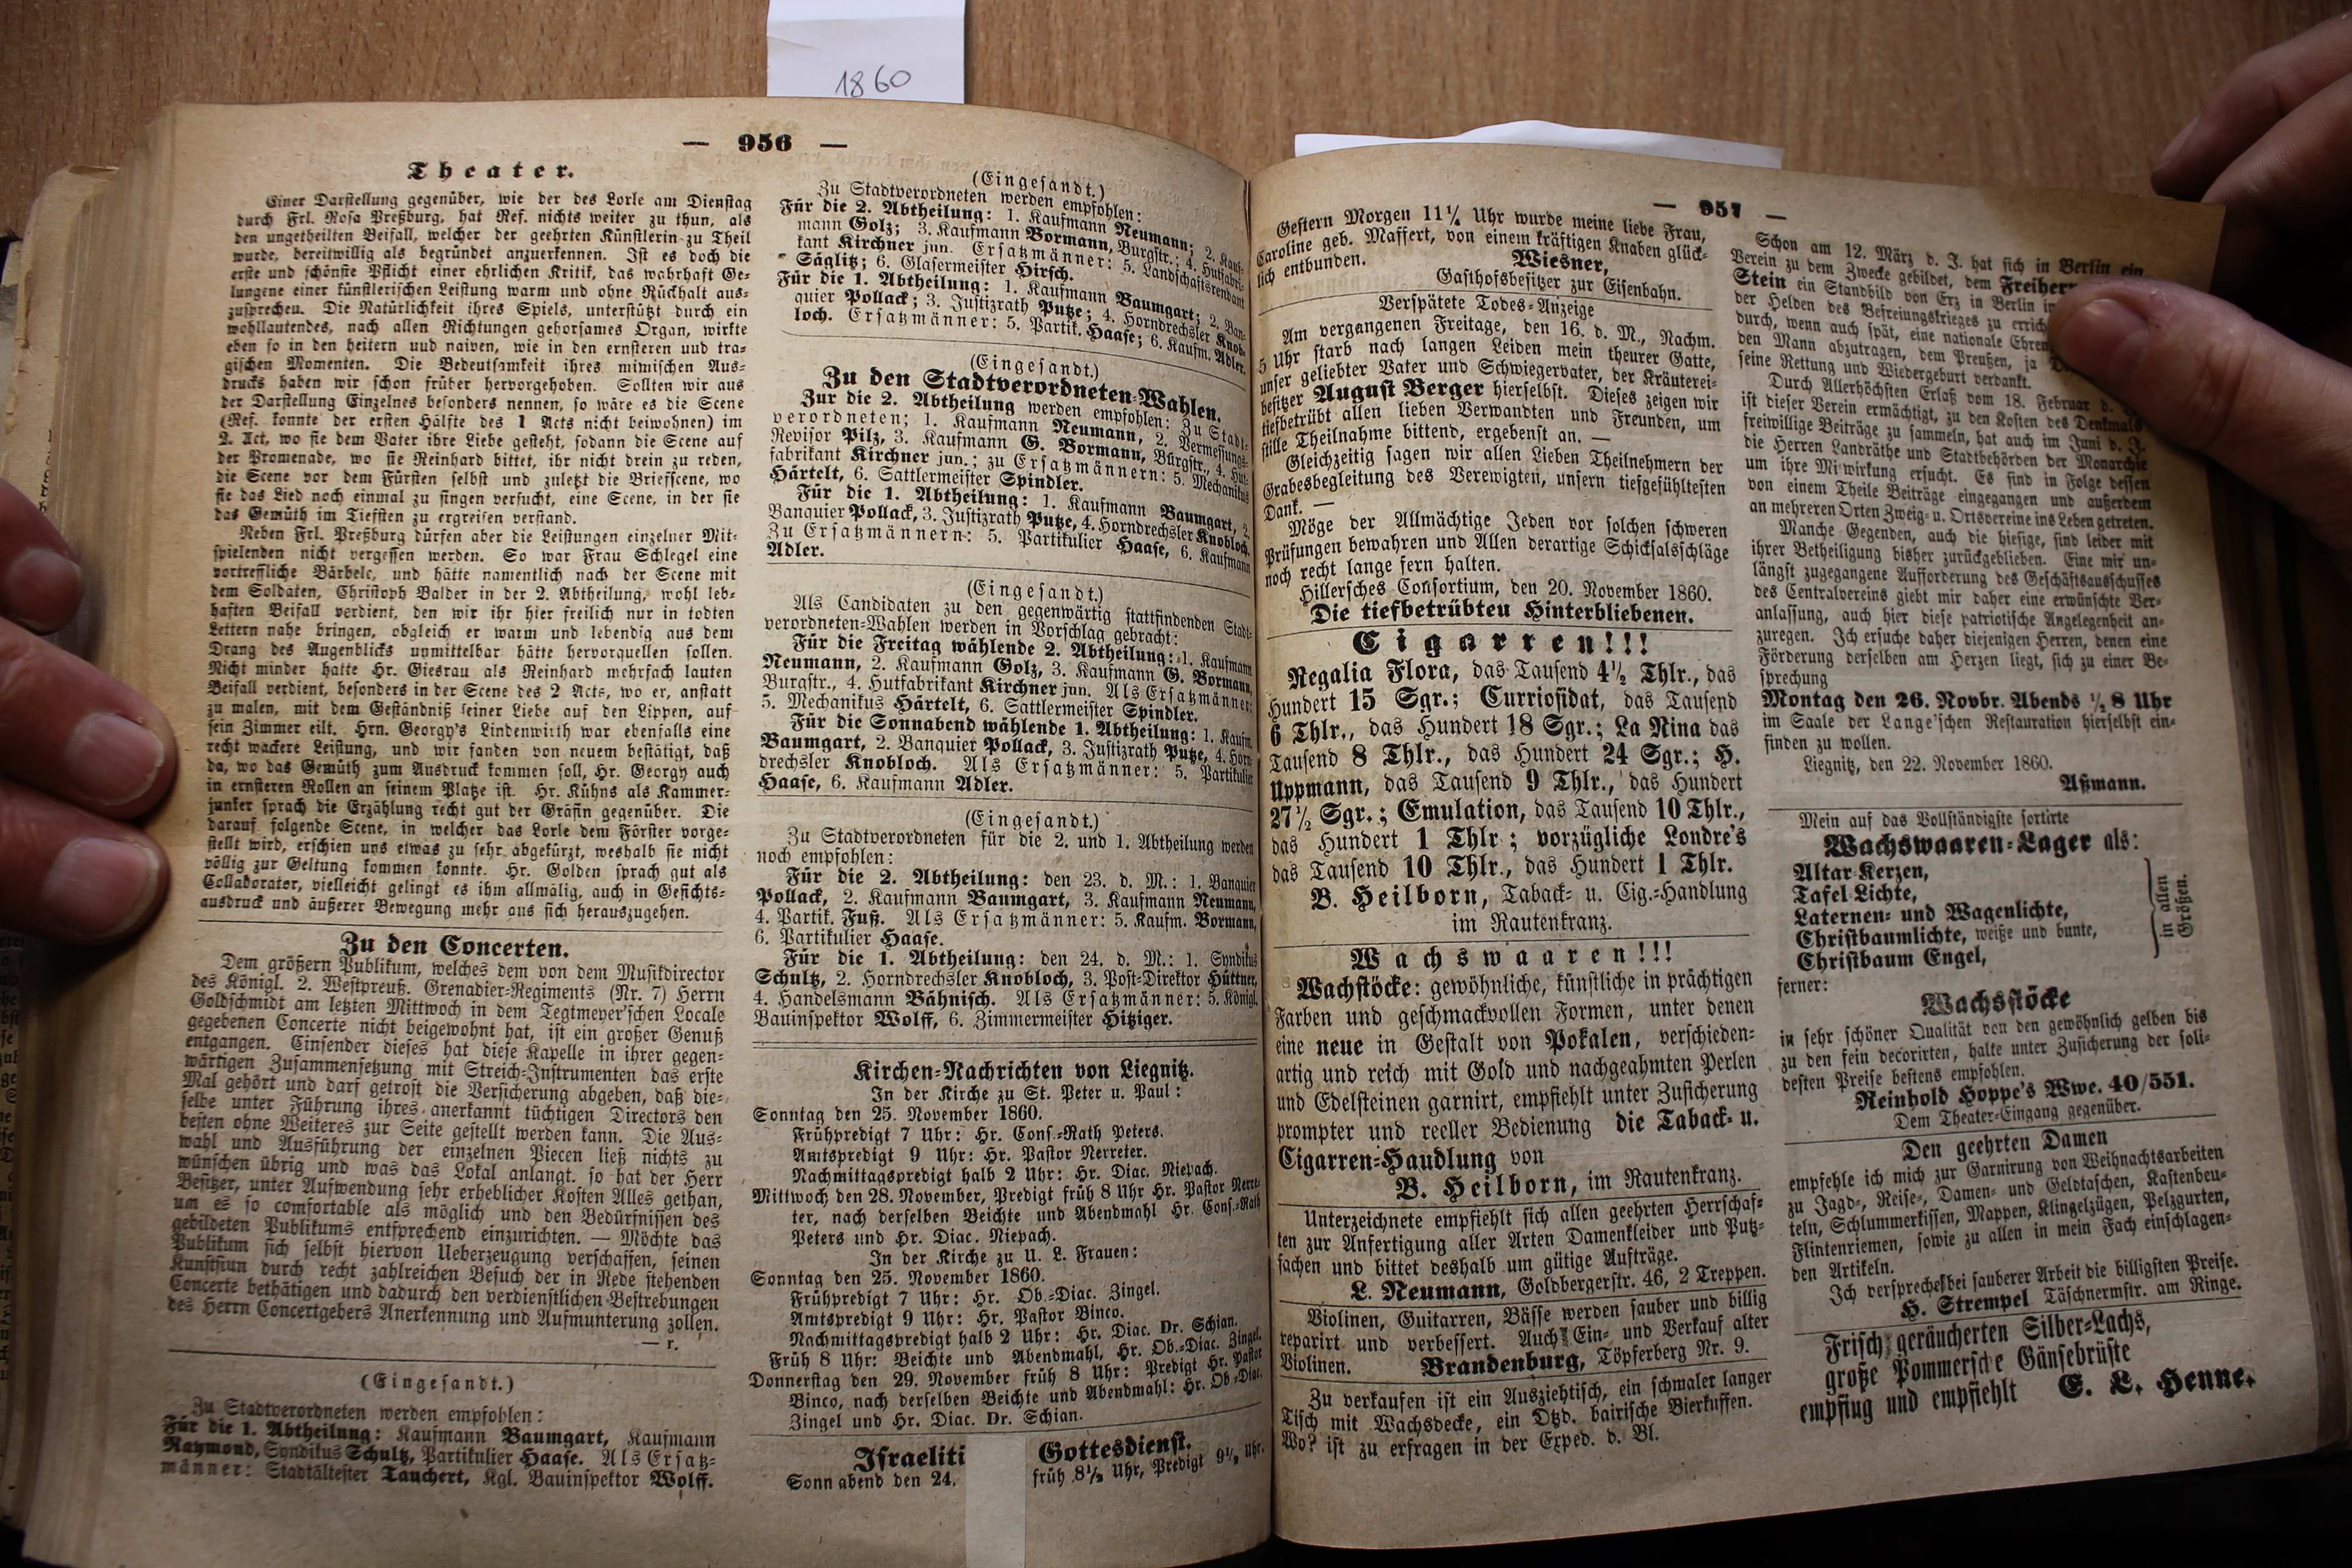 1860
— 956 —
Theater.
Einer Darstellung gegenüber, wie der des Lorle am Dienstag
durch Frl. Rosa Preßburg, hat Ref. nichts weiter zu thun, als
den ungetheilten Beifall, welcher der geehrten Künstlerin zu Theil
wurde, bereitwillig als begründet anzuerkennen. Ist es doch die
erste und schönste Pflicht einer ehrlichen Kritik, das wahrhaft Ge-
lungene einer künstlerischen Leistung warm und ohne Rückhalt aus-
zusprechen. Die Natürlichkeit ihres Spiels, unterstützt durch ein
wohllautendes, nach allen Richtungen gehorsames Organ, wirkte
eben so in den heitern uud naiven, wie in den ernsteren uud tra-
gischen Momenten. Die Bedeutsamkeit ihres mimischen Aus-
drucks haben wir schon früber hervorgehoben. Sollten wir aus
der Darstellung Einzelnes besonders nennen, so wäre es die Scene
(Ref. konnte der ersten Hälfte des 1 Acts nicht beiwohnen) im
2. Act, wo sie dem Vater ihre Liebe gesteht, sodann die Scene auf
der Promenade, wo sie Reinhard bittet, ihr nicht drein zu reden,
die Scene vor dem Fürsten selbst und zuletzt die Briefscene, wo
sie das Lied noch einmal zu singen versucht, eine Scene, in der sie
das Gemüth im Tiefsten zu ergreifen verstand.
Neben Frl. Preßburg dürfen aber die Leistungen einzelner Mit-
spielenden nicht vergessen werden. So war Frau Schlegel eine
vortreffliche Bärbele, und hätte namentlich nach der Scene mit
dem Soldaten, Christoph Balder in der 2. Abtheilung, wohl leb-
haften Beifall verdient, den wir ihr hier freilich nur in todten
Lettern nahe bringen, obgleich er warm und lebendig aus dem
Drang des Augenblicks unmittelbar hätte hervorquellen sollen.
Nicht minder hatte Hr. Giesrau als Reinhard mehrfach lauten
Beifall verdient, besonders in der Scene des 2 Acts, wo er, anstatt
zu malen, mit dem Geständniß seiner Liebe auf den Lippen, auf
sein Zimmer eilt. Hrn. Georgy's Lindenwirth war ebenfalls eine
recht wackere Leistung, und wir fanden von neuem bestätigt, daß
da, wo das Gemüth zum Ausdruck kommen soll, Hr. Georgy auch
in ernsteren Rollen an seinem Platze ist. Hr. Kühns als Kammer-
junker sprach die Erzählung recht gut der Gräfin gegenüber. Die
darauf folgende Scene, in welcher das Lorle dem Förster vorge-
stellt wird, erschien uns etwas zu sehr abgekürzt, weshalb sie nicht
völlig zur Geltung kommen konnte. Hr. Golden sprach gut als
Collaborator, vielleicht gelingt es ihm allmälig, auch in Gesichts-
ausdruck und äußerer Bewegung mehr aus sich herauszugehen.
Zu den Concerten.
Dem größern Publikum, welches dem von dem Musikdirector
des Königl. 2. Westpreuß. Grenadier-Regiments (Nr. 7) Herrn
Goldschmidt am letzten Mittwoch in dem Tegtmeyer'schen Locale
gegebenen Concerte nicht beigewohnt hat, ist ein großer Genuß
entgangen. Einsender dieses hat diese Kapelle in ihrer gegen-
wärtigen Zusammensetzung mit Streich-Instrumenten das erste
Mal gehört und darf getrost die Versicherung abgeben, daß die-
selbe unter Führung ihres anerkannt tüchtigen Directors den
besten ohne Weiteres zur Seite gestellt werden kann. Die Aus-
wahl und Ausführung der einzelnen Piecen ließ nichts zu
wünschen übrig und was das Lokal anlangt. so hat der Herr
Besitzer, unter Aufwendung sehr erheblicher Kosten Alles gethan,
um es so comfortable als möglich und den Bedürfnissen des
gebildeten Publikums entsprechend einzurichten. — Möchte das
Publikum sich selbst hiervon Ueberzeugung verschaffen, seinen
Kunstsinn durch recht zahlreichen Besuch der in Rede stehenden
Concerte bethätigen und dadurch den verdienstlichen Bestrebungen
des Herrn Concertgebers Anerkennung und Aufmunterung zollen.
— r.
(Eingesandt.)
Zu Stadtverordneten werden empfohlen:
Für die 1. Abtheilung: Kaufmann Baumgart, Kaufmann
Raymond, Syndikus Schultz, Partikulier Haase. Als Ersatz-
männer: Stadtältester Tauchert, Kgl. Bauinspektor Wolff.
(Eingesandt.)
Zu Stadtverordneten werden empfohlen:
Für die 2. Abtheilung: 1. Kaufmann Neumann; 2. Kauf-
mann Golz; 3. Kaufmann Bormann, Burgstr.; 4. Hutfabri-
kant Kirchner jun. Ersatzmänner: 5. Landschaftsrendant
Säglitz; 6. Glasermeister Hirsch.
Für die 1. Abtheilung: 1. Kaufmann Baumgart; 2. Ban-
quier Pollack; 3. Justizrath Putze; 4. Horndrechsler Knob-
loch. Ersatzmänner: 5. Partik. Haase; 6. Kaufm. Adler.
(Eingesandt.)
Zu den Stadtverordneten-Wahlen.
Zur die 2. Abtheilung werden empfohlen: Zu Stadt-
verordneten; 1. Kaufmann Neumann, 2. Vermessungs-
Revisor Pilz, 3. Kaufmann G. Bormann, Burgstr., 4. Hut-
fabrikant Kirchner jun.; zu Ersatzmännern: 5. Mechanikus
Härtelt, 6. Sattlermeister Spindler.
Für die 1. Abtheilung: 1. Kaufmann Baumgart, 2.
Banquier Pollack, 3. Justizrath Putze, 4. Horndrechsler Knobloch.
Zu Ersatzmännern: 5. Partikulier Haase, 6. Kaufmann
Adler.
(Eingesandt.)
Als Candidaten zu den gegenwärtig stattfindenden Stadt-
verordneten-Wahlen werden in Vorschlag gebracht:
Für die Freitag wählende 2. Abtheilung: 1. Kaufmann
Neumann, 2. Kaufmann Golz, 3. Kaufmann G. Bormann,
Burgstr., 4. Hutfabrikant Kirchner jun. Als Ersatzmänner:
5. Mechanikus Härtelt, 6. Sattlermeister Spindler.
Für die Sonnabend wählende 1. Abtheilung: 1. Kaufm.
Baumgart, 2. Banquier Pollack, 3. Justizrath Putze, 4. Horn-
drechsler Knobloch. Als Ersatzmänner: 5. Partikulier
Haase, 6. Kaufmann Adler.
(Eingesandt.)
Zu Stadtverordneten für die 2. und 1. Abtheilung werden
noch empfohlen:
Für die 2. Abtheilung: den 23. d. M.: 1. Banquier
Pollack, 2. Kaufmann Baumgart, 3. Kaufmann Neumann,
4. Partik. Fuß. Als Ersatzmänner: 5. Kaufm. Bormann,
6. Partikulier Haase.
Für die 1. Abtheilung: den 24. d. M.: 1. Syndikus
Schultz, 2. Horndrechsler Knobloch, 3. Post-Direktor Hüttner,
4. Handelsmann Bähnisch. Als Ersatzmänner: 5. Königl.
Bauinspektor Wolff, 6. Zimmermeister Hitziger.
Kirchen-Nachrichten von Liegnitz.
In der Kirche zu St. Peter u. Paul:
Sonntag den 25. November 1860.
Frühpredigt 7 Uhr: Hr. Cons.-Rath Peters.
Amtspredigt 9 Uhr: Hr. Pastor Nerreter.
Nachmittagspredigt halb 2 Uhr: Hr. Diac. Niepach.
Mittwoch den 28. November, Predigt früh 8 Uhr Hr. Pastor Nerre-
ter, nach derselben Beichte und Abendmahl Hr. Cons.-Rath
Peters und Hr. Diac. Niepach.
In der Kirche zu U. L. Frauen:
Sonntag den 25. November 1860.
Frühpredigt 7 Uhr: Hr. Ob.-Diac. Zingel.
Amtspredigt 9 Uhr: Hr. Pastor Binco.
Nachmittagspredigt halb 2 Uhr: Hr. Diac. Dr. Schian.
Früh 8 Uhr: Beichte und Abendmahl, Hr. Ob.-Diac. Zingel.
Donnerstag den 29. November früh 8 Uhr: Predigt Hr. Pastor
Binco, nach derselben Beichte und Abendmahl: Hr. Ob-Diac.
Zingel und Hr. Diac. Dr. Schian.
Israeliti Gottesdienst.
Sonnabend den 24. früh 8½ Uhr, Predigt 9½ Uhr.
— 957 —
Gestern Morgen 11¼ Uhr wurde meine liebe Frau,
Caroline geb. Maffert, von einem kräftigen Knaben glück-
lich entbunden.
Wiesner,
Gasthofsbesitzer zur Eisenbahn.
Verspätete Todes-Anzeige
Am vergangenen Freitage, den 16. d. M., Nachm.
5 Uhr starb nach langen Leiden mein theurer Gatte,
unser geliebter Vater und Schwiegervater, der Kräuterei-
besitzer August Berger hierselbst. Dieses zeigen wir
tiefbetrübt allen lieben Verwandten und Freunden, um
stille Theilnahme bittend, ergebenst an. —
Gleichzeitig sagen wir allen Lieben Theilnehmern der
Grabesbegleitung des Verewigten, unsern tiefgefühltesten
Dank. —
Möge der Allmächtige Jeden vor solchen schweren
Prüfungen bewahren und Allen derartige Schicksalsschläge
noch recht lange fern halten.
Hillersches Consortium, den 20. November 1860.
Die tiefbetrübteu Hinterbliebenen.
Cigarren!!!
Regalia Flora, das Tausend 4½ Thlr., das
Hundert 15 Sgr.; Curriosidat, das Tausend
6 Thlr., das Hundert 18 Sgr.; La Nina das
Tausend 8 Thlr., das Hundert 24 Sgr.; H.
Uppmann, das Tausend 9 Thlr., das Hundert
27½ Sgr.; Emulation, das Tausend 10 Thlr.,
das Hundert 1 Thlr; vorzügliche Londre's
das Tausend 10 Thlr., das Hundert 1 Thlr.
B. Heilborn, Taback- u. Cig.-Handlung
im Rautenkranz.
Wachswaaren!!!
Wachstöcke: gewöhnliche, künstliche in prächtigen
Farben und geschmackvollen Formen, unter denen
eine neue in Gestalt von Pokalen, verschieden-
artig und reich mit Gold und nachgeahmten Perlen
und Edelsteinen garnirt, empfiehlt unter Zusicherung
prompter und reeller Bedienung die Taback- u.
Cigarren-Haudlung von
B. Heilborn, im Rautenkranz.
Unterzeichnete empfiehlt sich allen geehrten Herrschaf-
ten zur Anfertigung aller Arten Damenkleider und Putz-
sachen und bittet deshalb um gütige Aufträge.
L. Neumann, Goldbergerstr. 46, 2 Treppen.
Violinen, Guitarren, Bässe werden sauber und billig
reparirt und verbessert. Auch Ein- und Verkauf alter
Violinen. Brandenburg, Töpferberg Nr. 9.
Zu verkaufen ist ein Ausziehtisch, ein schmaler langer
Tisch mit Wachsdecke, ein Dtzd. bairische Bierkuffen.
Wo? ist zu erfragen in der Exped. d. Bl.
Schon am 12. März d. J. hat sich in Berlin ein
Verein zu dem Zwecke gebildet, dem Freiherr
Stein ein Standbild von Erz in Berlin in
der Helden des Befreiungskrieges zu errich
durch, wenn auch spät, eine nationale Ehren
den Mann abzutragen, dem Preußen, ja
seine Rettung und Wiedergeburt verdankt.
Durch Allerhöchsten Erlaß vom 18. Februar d.
ist dieser Verein ermächtigt, zu den Kosten des Denkmals
freiwillige Beiträge zu sammeln, hat auch im Juni d. J.
die Herren Landräthe und Stadtbehörden der Monarchie
um ihre Mitwirkung ersucht. Es sind in Folge dessen
von einem Theile Beiträge eingegangen und außerdem
an mehreren Orten Zweig- u. Ortsvereine ins Leben getreten.
Manche Gegenden, auch die hiesige, sind leider mit
ihrer Betheiligung bisher zurückgeblieben. Eine mir un-
längst zugegangene Aufforderung des Geschäftsausschusses
des Centralvereins giebt mir daher eine erwünschte Ver-
anlassung, auch hier diese patriotische Angelegenheit an-
zuregen. Ich ersuche daher diejenigen Herren, denen eine
Förderung derselben am Herzen liegt, sich zu einer Be-
sprechung
Montag den 26. Novbr. Abends ½ 8 Uhr
im Saale der Lange'schen Restauration hierselbst ein-
finden zu wollen.
Liegnitz, den 22. November 1860.
Aßmann.
Mein auf das Vollständigste sortirte
Wachswaaren-Lager als:
Altar-Kerzen,
Tafel-Lichte,
Laternen- und Wagenlichte,
Christbaumlichte, weiße und bunte,
Christbaum Engel,
in allen
Größen.
ferner:
Wachsstöcke
in sehr schöner Qualität von den gewöhnlich gelben bis
zu den fein decorirten, halte unter Zusicherung der soli-
desten Preise bestens empfohlen.
Reinhold Hoppe's Wwe. 40/551.
Dem Theater-Eingang gegenüber.
Den geehrten Damen
empfehle ich mich zur Garnirung von Weihnachtsarbeiten
zu Jagd-, Reise-, Damen- und Geldtaschen, Kastenbeu-
teln, Schlummerkissen, Mappen, Klingelzügen, Pelzgurten,
Flintenriemen, sowie zu allen in mein Fach einschlagen-
den Artikeln.
Ich verspreche bei sauberer Arbeit die billigsten Preise.
H. Strempel Täschnermstr. am Ringe.
Frisch geräucherten Silber-Lachs,
große Pommersche Gänsebrüste
empfiug und empfiehlt E. L. Henne.